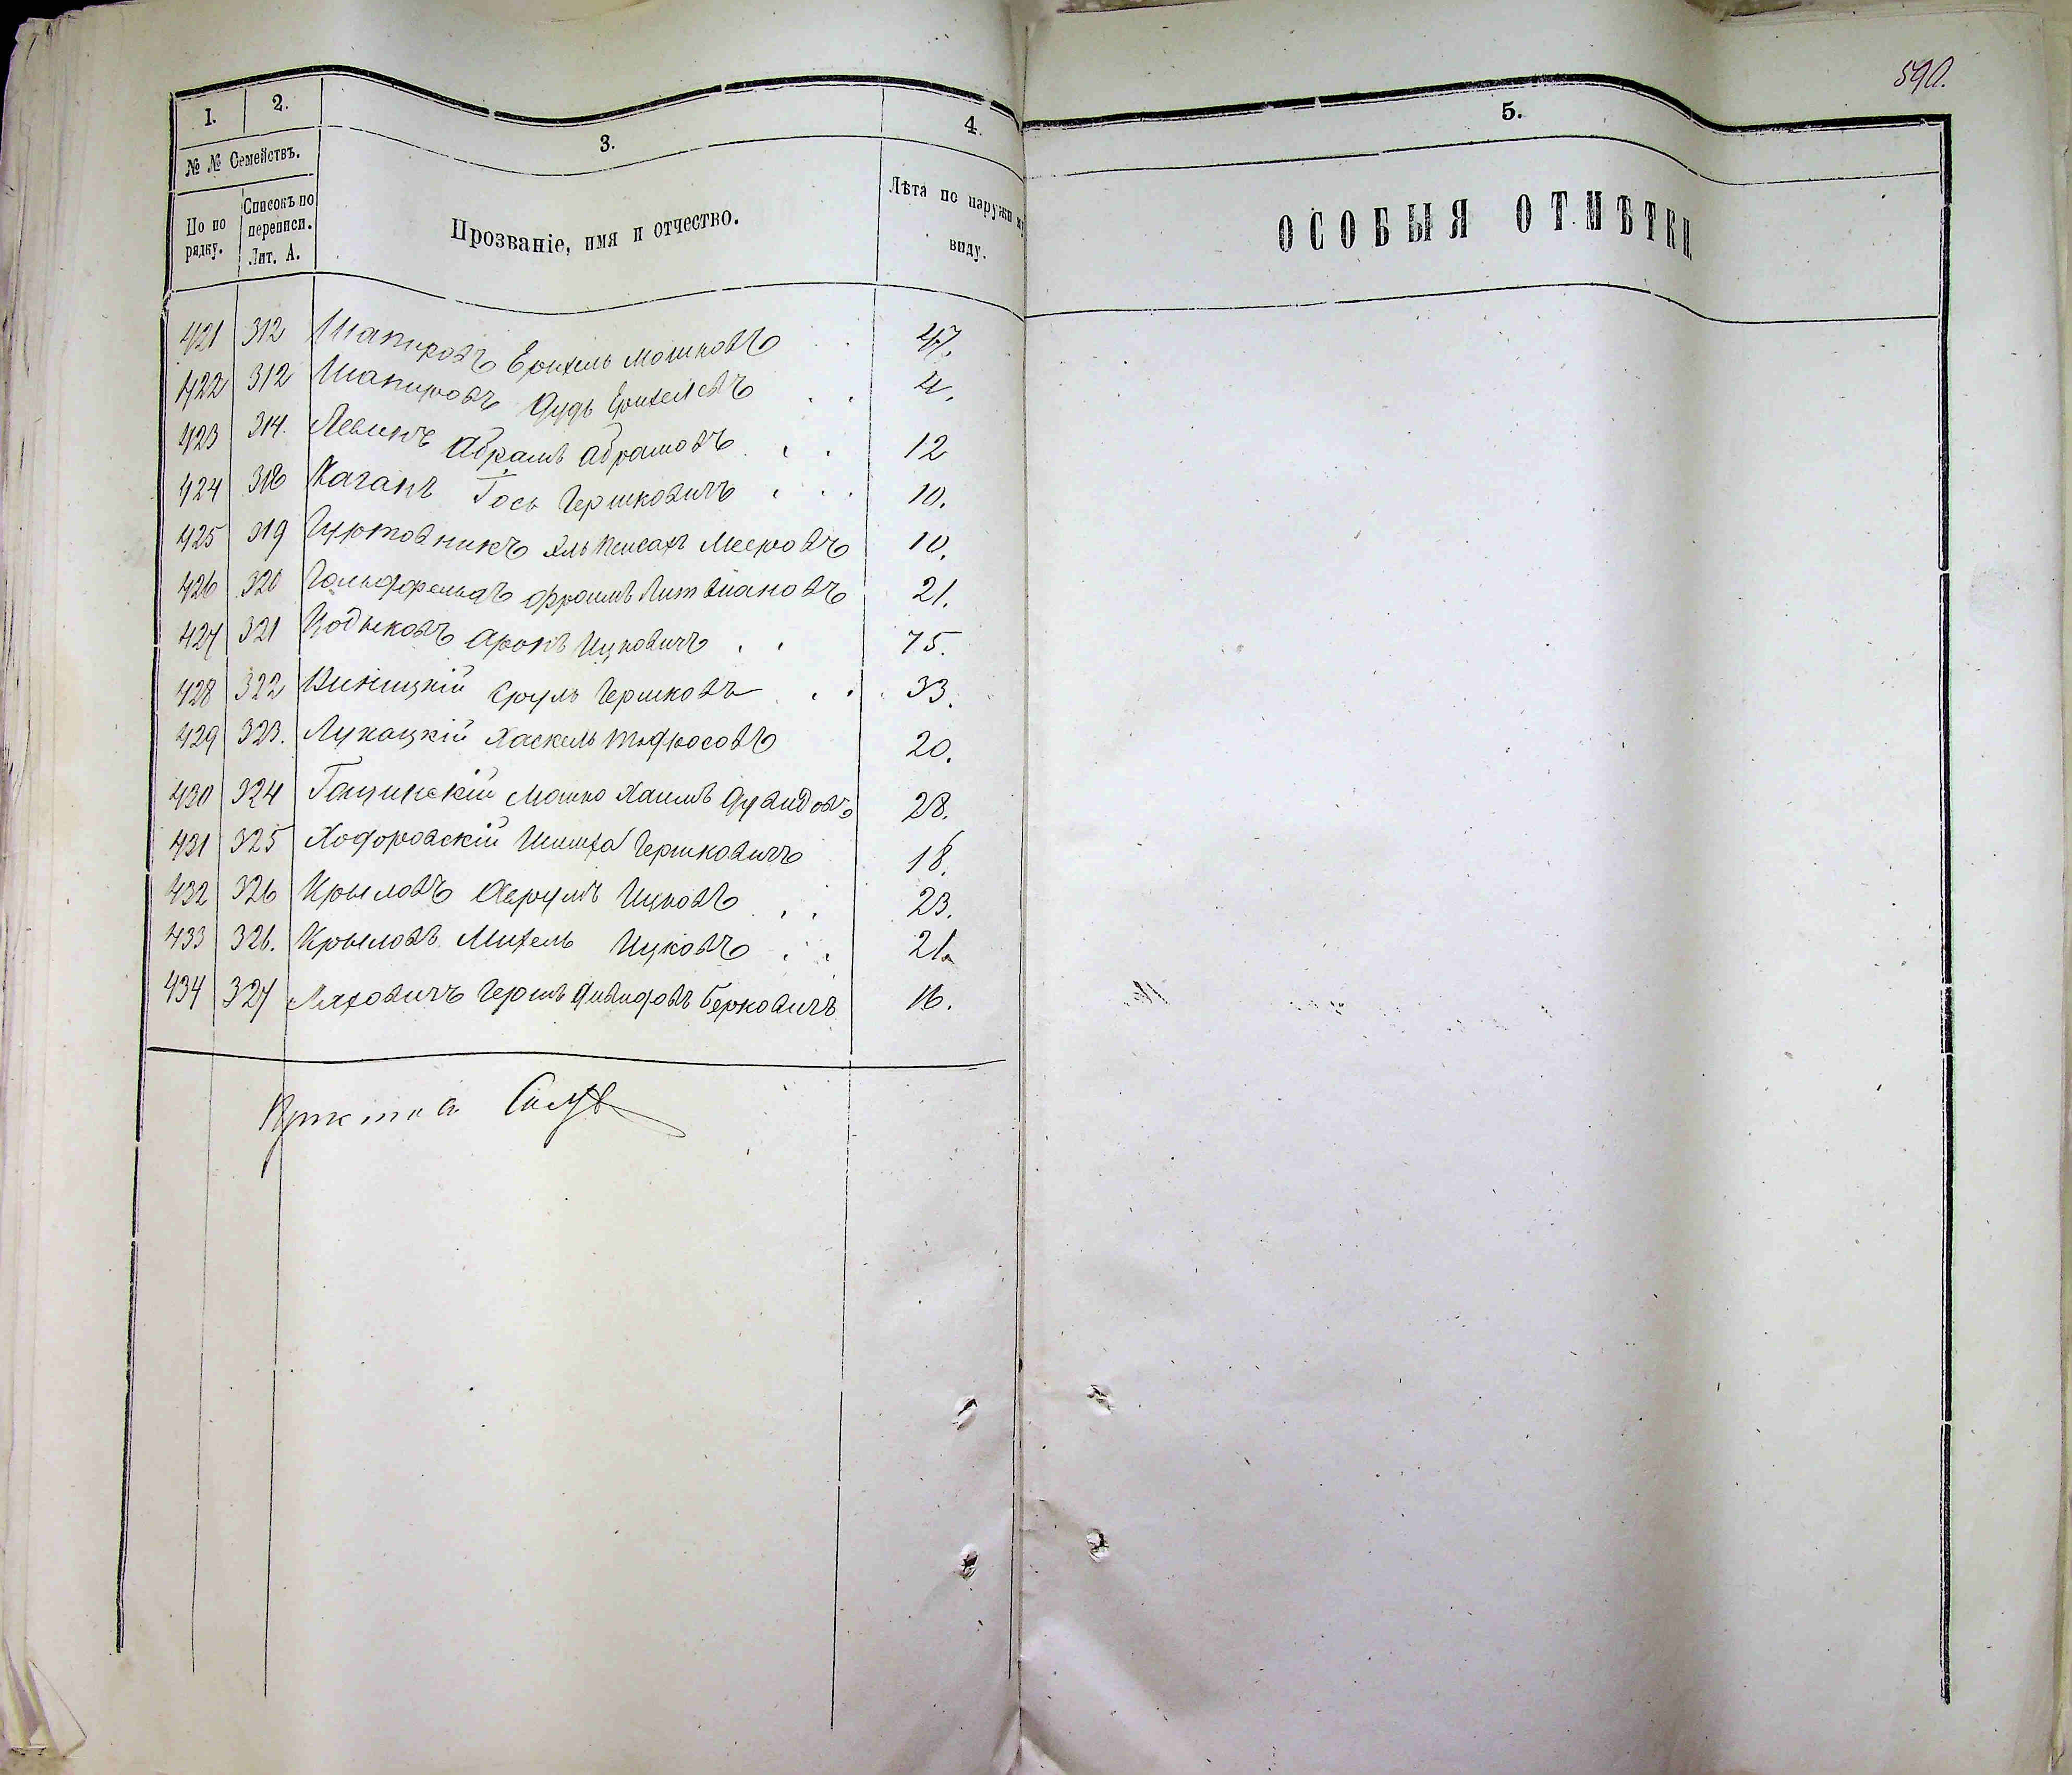 590.
1. 2. 3. 4. 5.
№ № Семействъ.
По по рядку.
Списокъ по переписи. Лит. А.
Прозваніе, имя и отчество.
Лѣта по наружн виду.
ОСОБЫЯ ОТМѢТКИ.
421 312 Шапировъ Ерихель Мошковъ 47.
422 312 Шапировъ Дудь Ерихелевъ 4.
423 314. Левинъ Абрамъ Абрамовъ 12
424 318 Каганъ Іось Гершковичъ 10.
425 319 Гуртовникъ Эль Пейсахъ Мееровъ 10.
426 320 Гольдфельдъ Фроимъ 21.
427 321 Кодыковъ Аронъ Ицковичъ 75.
428 322 Виницкій Сруль Гершковъ 33.
429 323. Лукацкій Хаскель 20.
430 324 Мошко Хаимъ Дувидовъ 28.
431 325 Ходоровскій Шимха Гершковичъ 18.
432 326 Крыловъ Аврумъ Ицковъ 23.
433 326. Крыловъ Михель Ицковъ 21.
434 327 Ляховичъ Гершъ Давидовъ Берковичъ 16.